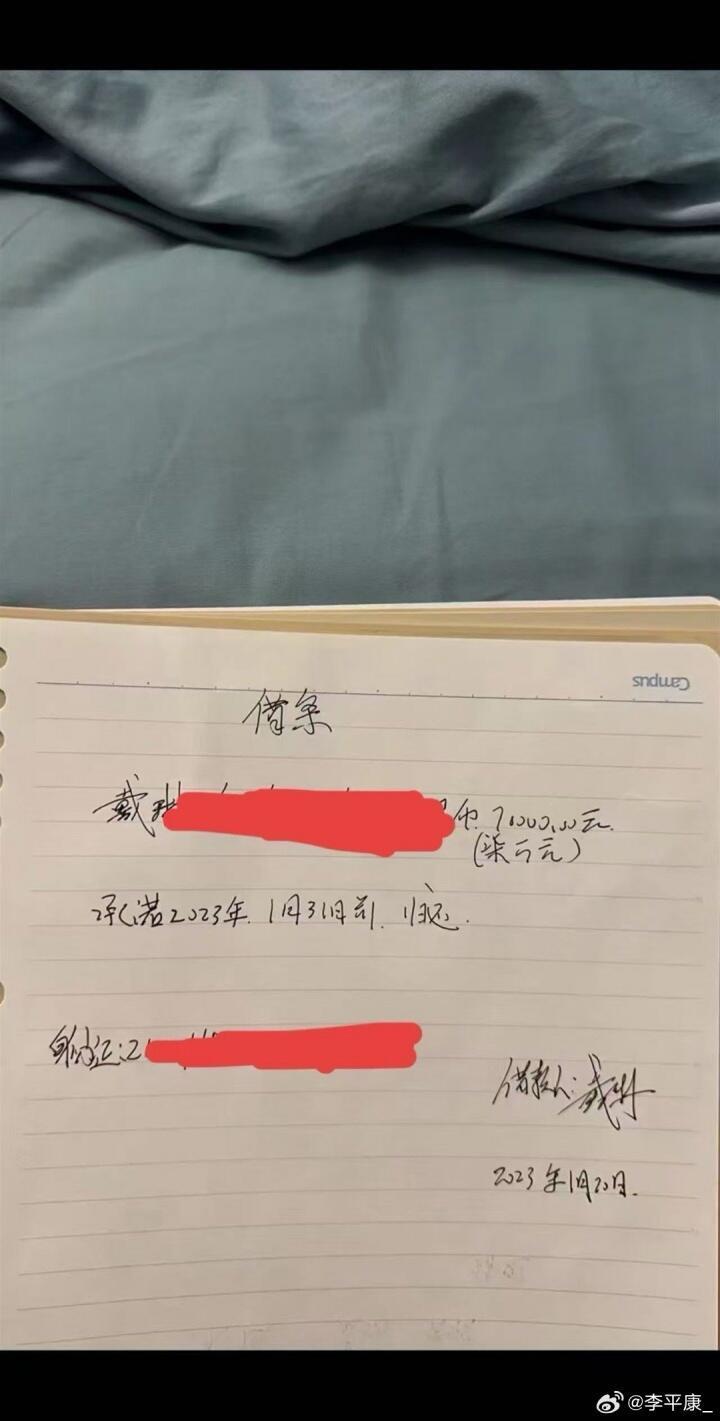 Campus
借条
戴琳
币 70000.00元
(柒万元)
承诺2023年1月31日前归还.
身份证:2
借款人:戴琳
2023年1月20日.
@李平康_